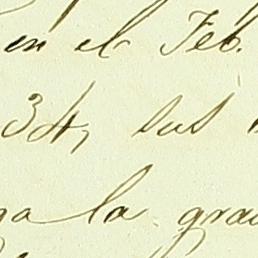 en el Feb.
34, sus
na la gra